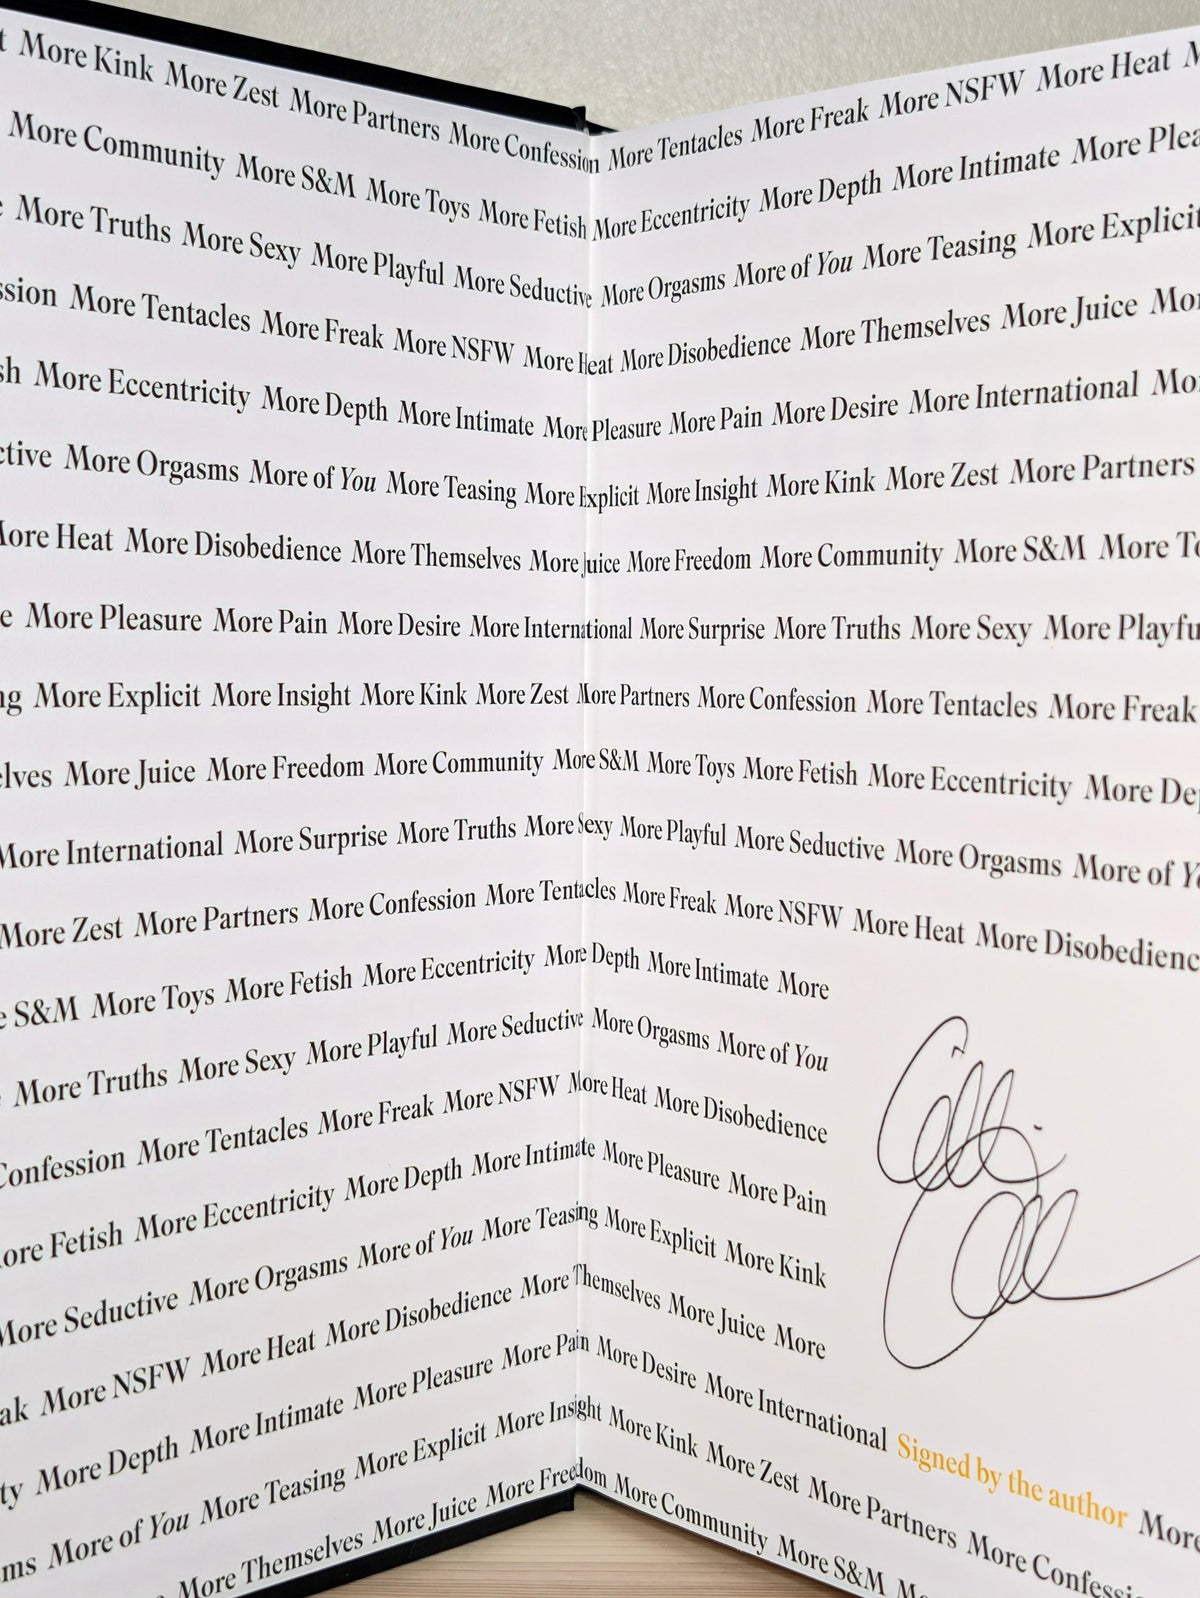 t More Kink More Zest More Partners More Confession More Tentacles More Freak More NSFW More Heat M
More Community More S&M More Toys More Fetish More Eccentricity More Depth More Intimate More Plea
e More Truths More Sexy More Playful More Seductive More Orgasms More of You More Teasing More Explicit
ssion More Tentacles More Freak More NSFW More Heat More Disobedience More Themselves More Juice Mor
sh More Eccentricity More Depth More Intimate More Pleasure More Pain More Desire More International Mo
ctive More Orgasms More of You More Teasing More Explicit More Insight More Kink More Zest More Partners
More Heat More Disobedience More Themselves More Juice More Freedom More Community More S&M More To
e More Pleasure More Pain More Desire More International More Surprise More Truths More Sexy More Playfu
ng More Explicit More Insight More Kink More Zest More Partners More Confession More Tentacles More Freak
elves More Juice More Freedom More Community More S&M More Toys More Fetish More Eccentricity More Dep
More International More Surprise More Truths More Sexy More Playful More Seductive More Orgasms More of Yo
More Zest More Partners More Confession More Tentacles More Freak More NSFW More Heat More Disobedienc
e S&M More Toys More Fetish More Eccentricity More Depth More Intimate More
More Truths More Sexy More Playful More Seductive More Orgasms More of You
Confession More Tentacles More Freak More NSFW More Heat More Disobedience
ore Fetish More Eccentricity More Depth More Intimate More Pleasure More Pain
More Seductive More Orgasms More of You More Teasing More Explicit More Kink
ak More NSFW More Heat More Disobedience More Themselves More Juice More
ty More Depth More Intimate More Pleasure More Pain More Desire More International Signed by the author More
ms More of You More Teasing More Explicit More Insight More Kink More Zest More Partners More Confessi
More Themselves More Juice More Freedom More Community More S&M M